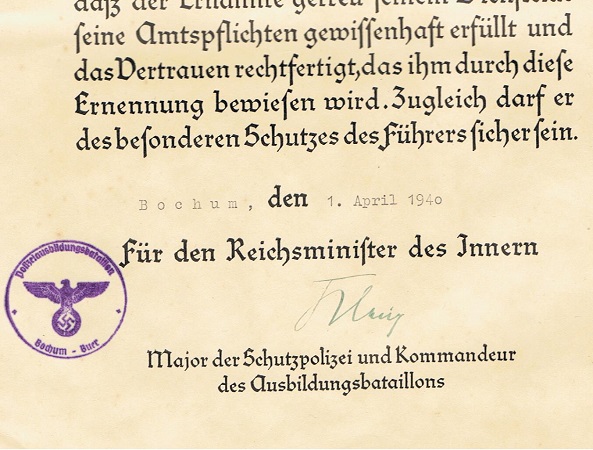 daß der Ernannte getreu seinem Diensteide
seine Amtspflichten gewissenhaft erfüllt und
das Vertrauen rechtfertigt, das ihm durch diese
Ernennung bewiesen wird. Zugleich darf er
des besonderen Schutzes des Führers sicher sein.
Bochum, den 1. April 1940
Für den Reichsminister des Innern
Polizeiausbildungsbataillon
Bochum - Buer
Major der Schutzpolizei und Kommandeur
des Ausbildungsbataillons